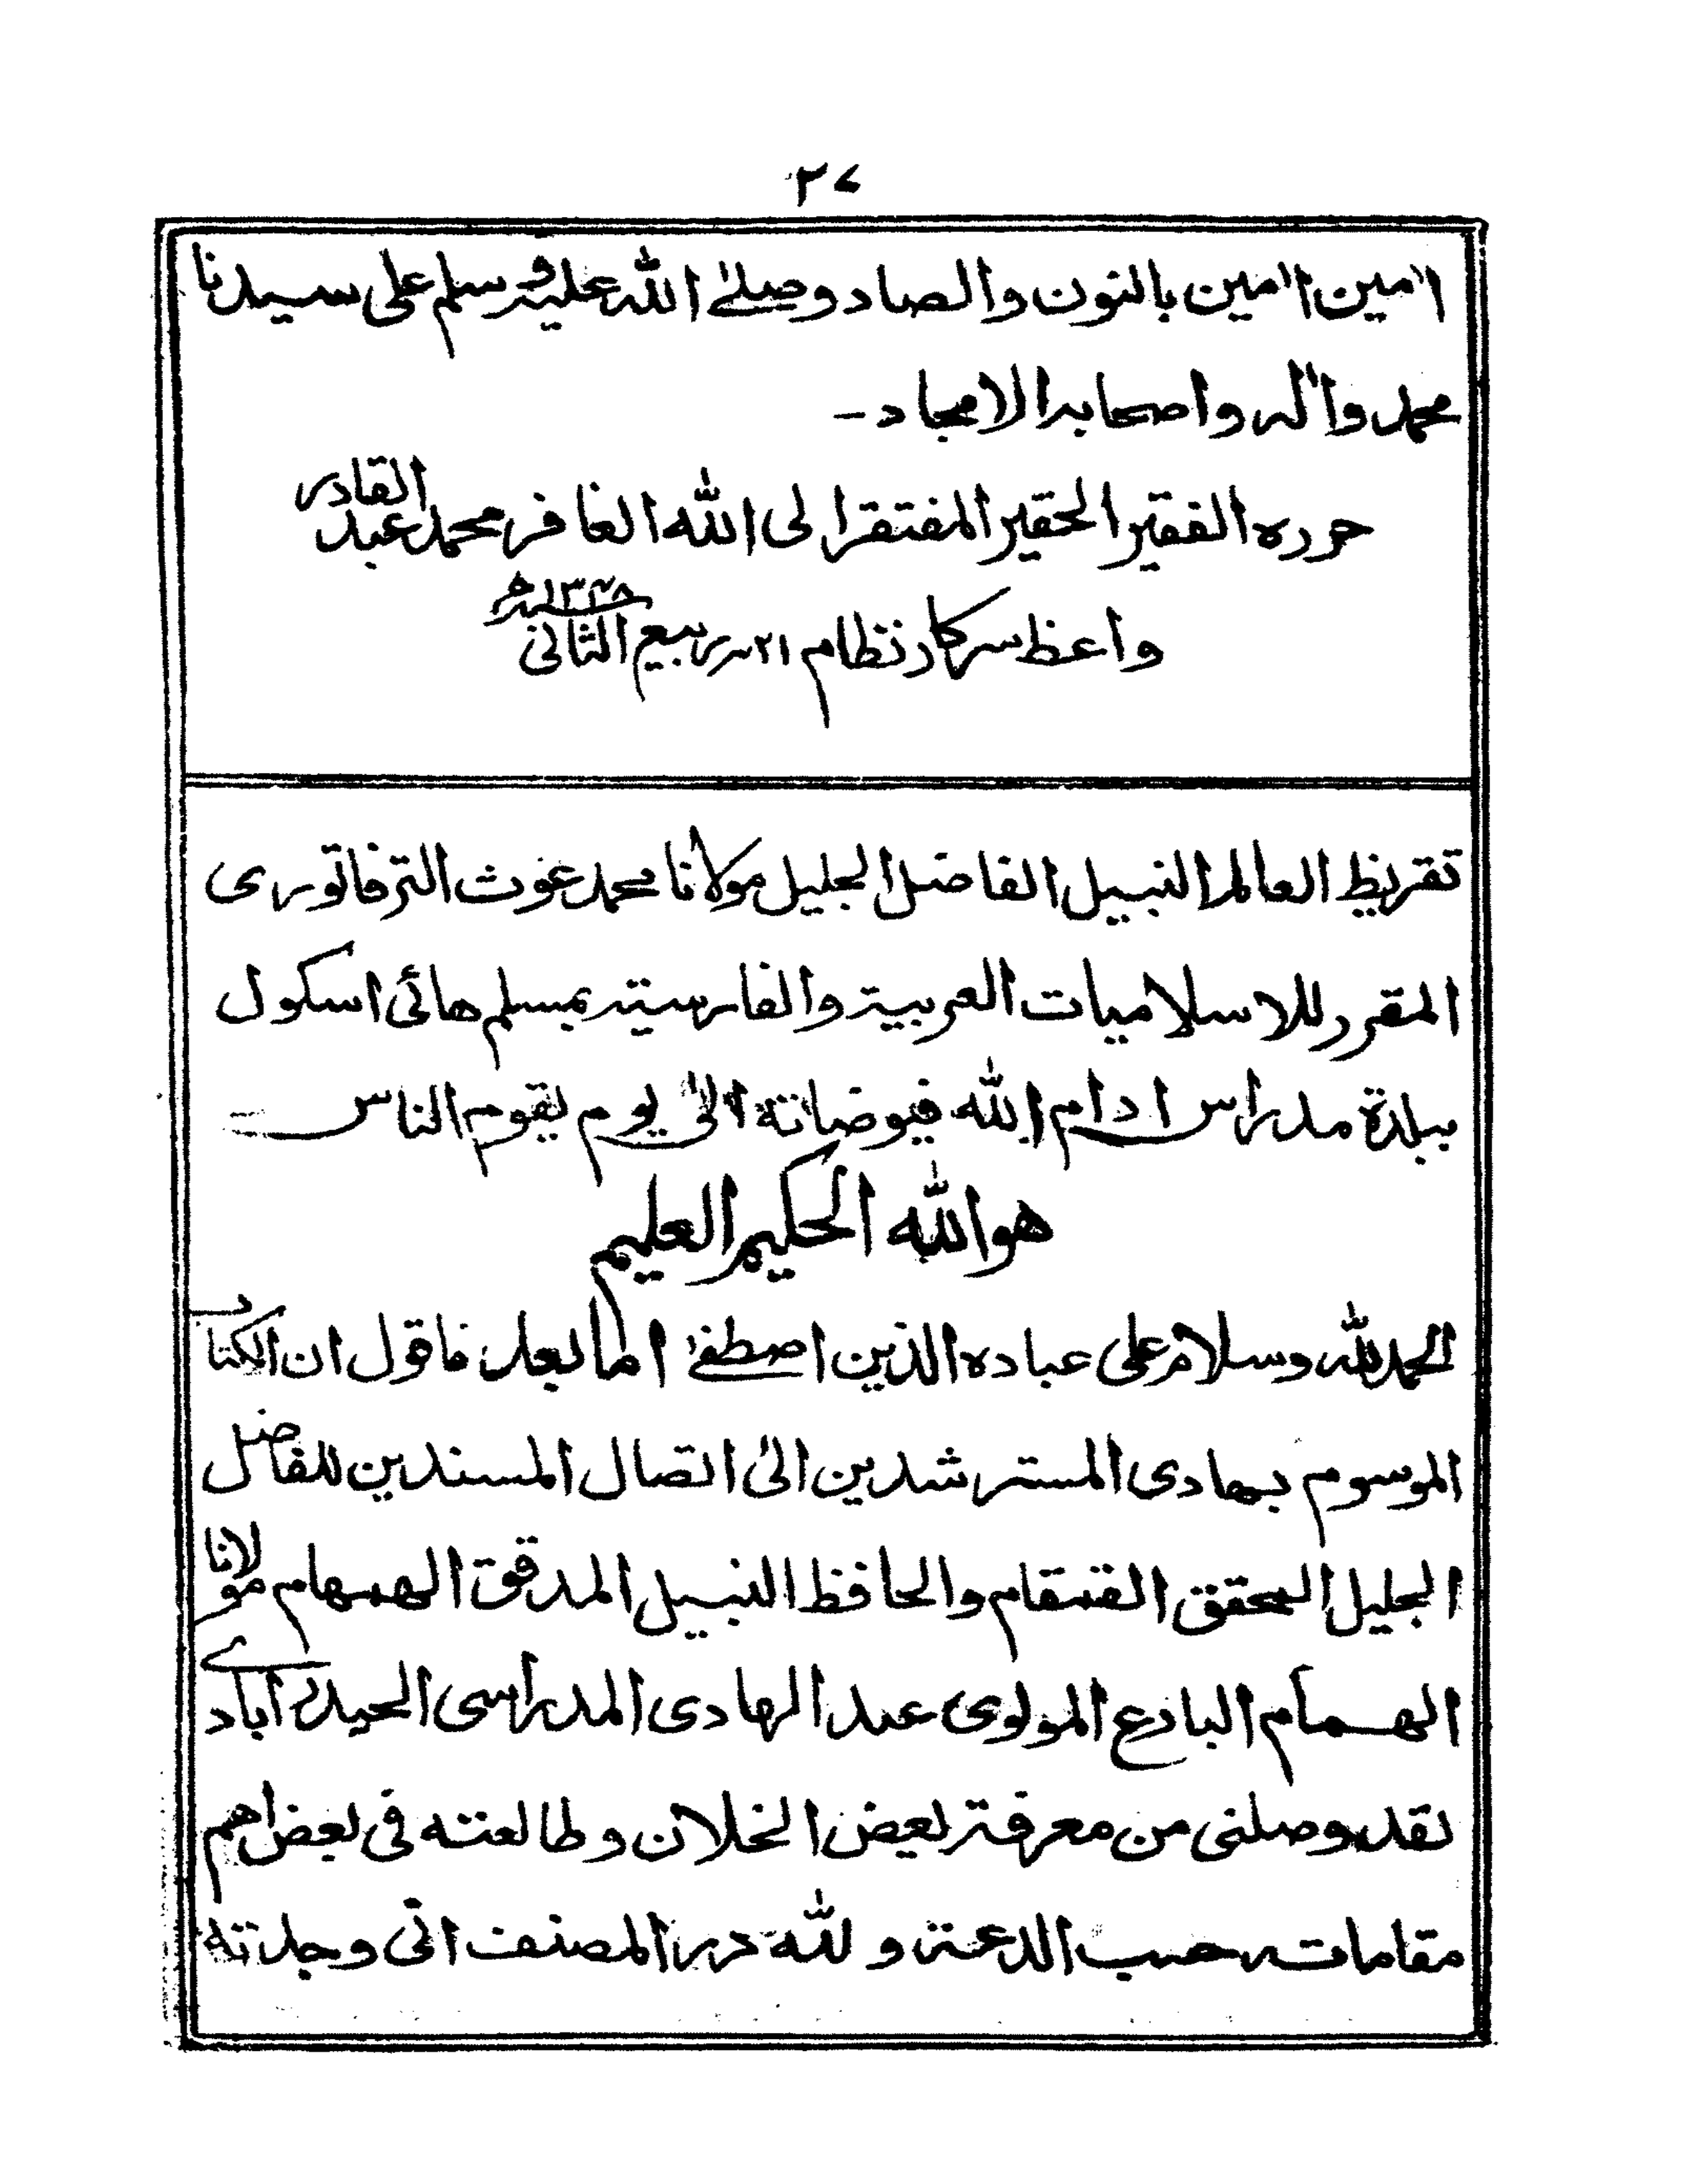 ٢٧
اٰمين اٰمين بالنون والصاد وصلىٰ الله عليه وسلم على سيدنا
محمد واٰله واصحابه الامجاد ـ
حرره الفقير الحقير المفتقر الى الله الغافر محمد عبد القادر
واعظ سركار نظام ٢١ ربيع الثانى ١٣٤٨ه
تقريظ العالم النبيل الفاضل الجليل مولانا محمد غوث الترفاتورى
المقرر للاسلاميات العربية والفارسية بمسلم هائى اسكول
ببلدة مدراس ادام الله فيوضاته الىٰ يوم يقوم الناس
هو الله الحكيم العليم
الحمد لله وسلام على عباده الذين اصطفىٰ اما بعد فاقول ان الكتاب
الموسوم بهادى المسترشدين الىٰ اتصال المسندين للفاضل
الجليل المحقق القمقام والحافظ النبيل المدقق الهمهام مولانا
الهمام البارع المولوى عبد الهادى المدراسى الحيدر آبادى
لقد وصلنى من معرفة بعض الخلان وطالعته فى بعض اهم
مقاماته حسب الدعة ولله درر المصنف انى وجدته